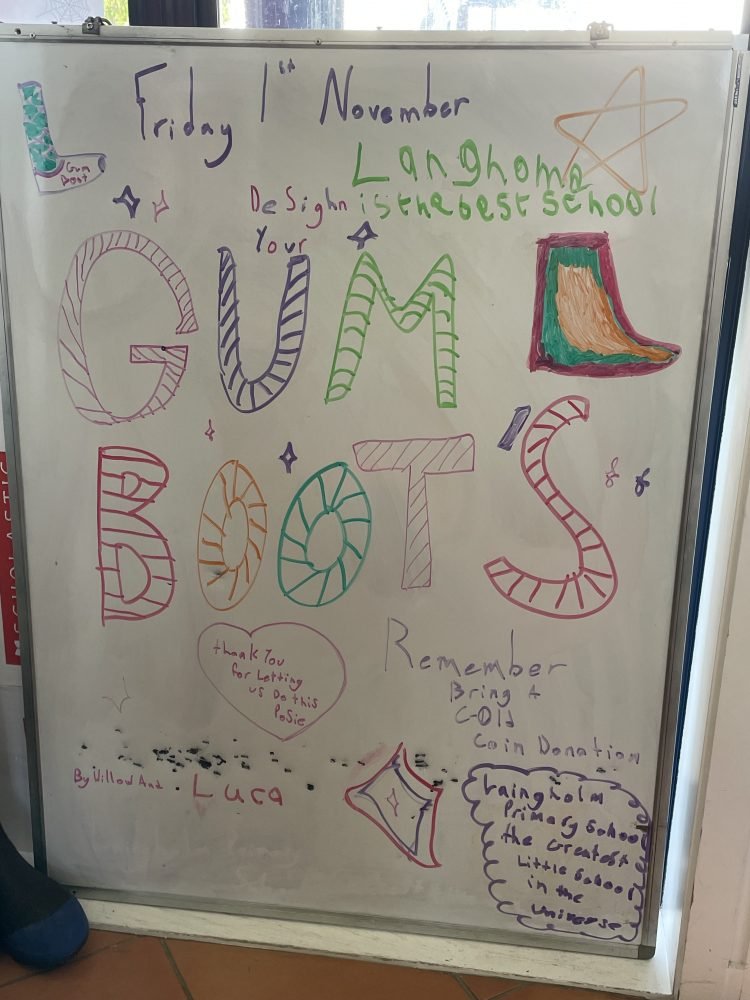 Friday 1st November
Gum
Boot
Langhome
is the best school
DeSighn
Your
GUM
BOOT'S
thank You
for Letting
us Do this
PoSie
Remember
Bring A
GOld
Coin Donation
By Willow And Luca
Laingholm
Primary School
the Greatest
Little School
in the
universe
SCHOLASTIC